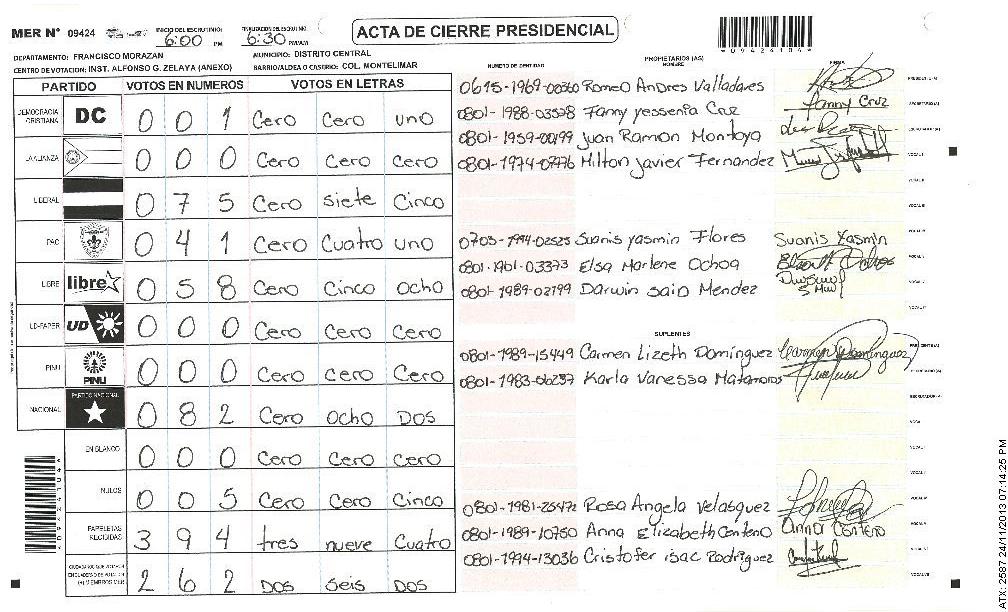 MER N° 09424 INICIO DEL ESCRUTINIO: 6:00 PM FINALIZACION DEL ESCRUTINIO: 6:30 PM/AM ACTA DE CIERRE PRESIDENCIAL
DEPARTAMENTO: FRANCISCO MORAZAN MUNICIPIO: DISTRITO CENTRAL
CENTRO DE VOTACION: INST. ALFONSO G. ZELAYA (ANEXO) BARRIO/ALDEA O CASERIO: COL. MONTELIMAR
NUMERO DE IDENTIDAD PROPIETARIOS (AS) NOMBRE FIRMA
PARTIDO VOTOS EN NUMEROS VOTOS EN LETRAS
DEMOCRACIA CRISTIANA DC 0 0 1 Cero Cero uno
LA ALIANZA 0 0 0 Cero Cero Cero
LIBERAL 0 7 5 Cero siete Cinco
PAC 0 4 1 Cero Cuatro uno
LIBRE libre 0 5 8 Cero Cinco Ocho
UD-FAPER UD 0 0 0 Cero Cero Cero
PINU PINU 0 0 0 Cero Cero Cero
NACIONAL PARTIDO NACIONAL 0 8 2 Cero Ocho Dos
EN BLANCO 0 0 0 Cero Cero Cero
NULOS 0 0 5 Cero Cero Cinco
PAPELETAS RECIBIDAS 3 9 4 tres nueve Cuatro
2 6 2 Dos seis Dos
0615-1969-00360 Romeo Andres Valladares
0801-1988-03578 Fanny yessenia Cruz Fanny Cruz
0801-1959-00199 Juan Ramon Montoya
0801-1974-07976 Milton Javier Fernandez
0703-1994-02525 Suanis yasmin Flores Suanis Yasmin
0801-1961-03373 Elsa Marlene Ochoa
0801-1989-02799 Darwin sain Mendez
SUPLENTES
0801-1989-15449 Carmen Lizeth Domínguez Carmen Domínguez
0801-1983-06237 Karla Vanessa Matamoros
0801-1981-25472 Rosa Angela Velasquez
0801-1989-10750 Anna Elizabeth Centeno Anna Centeno
0801-1994-13036 Cristofer isac Rodriguez
ATX: 2587 24/11/2013 07:14:25 PM